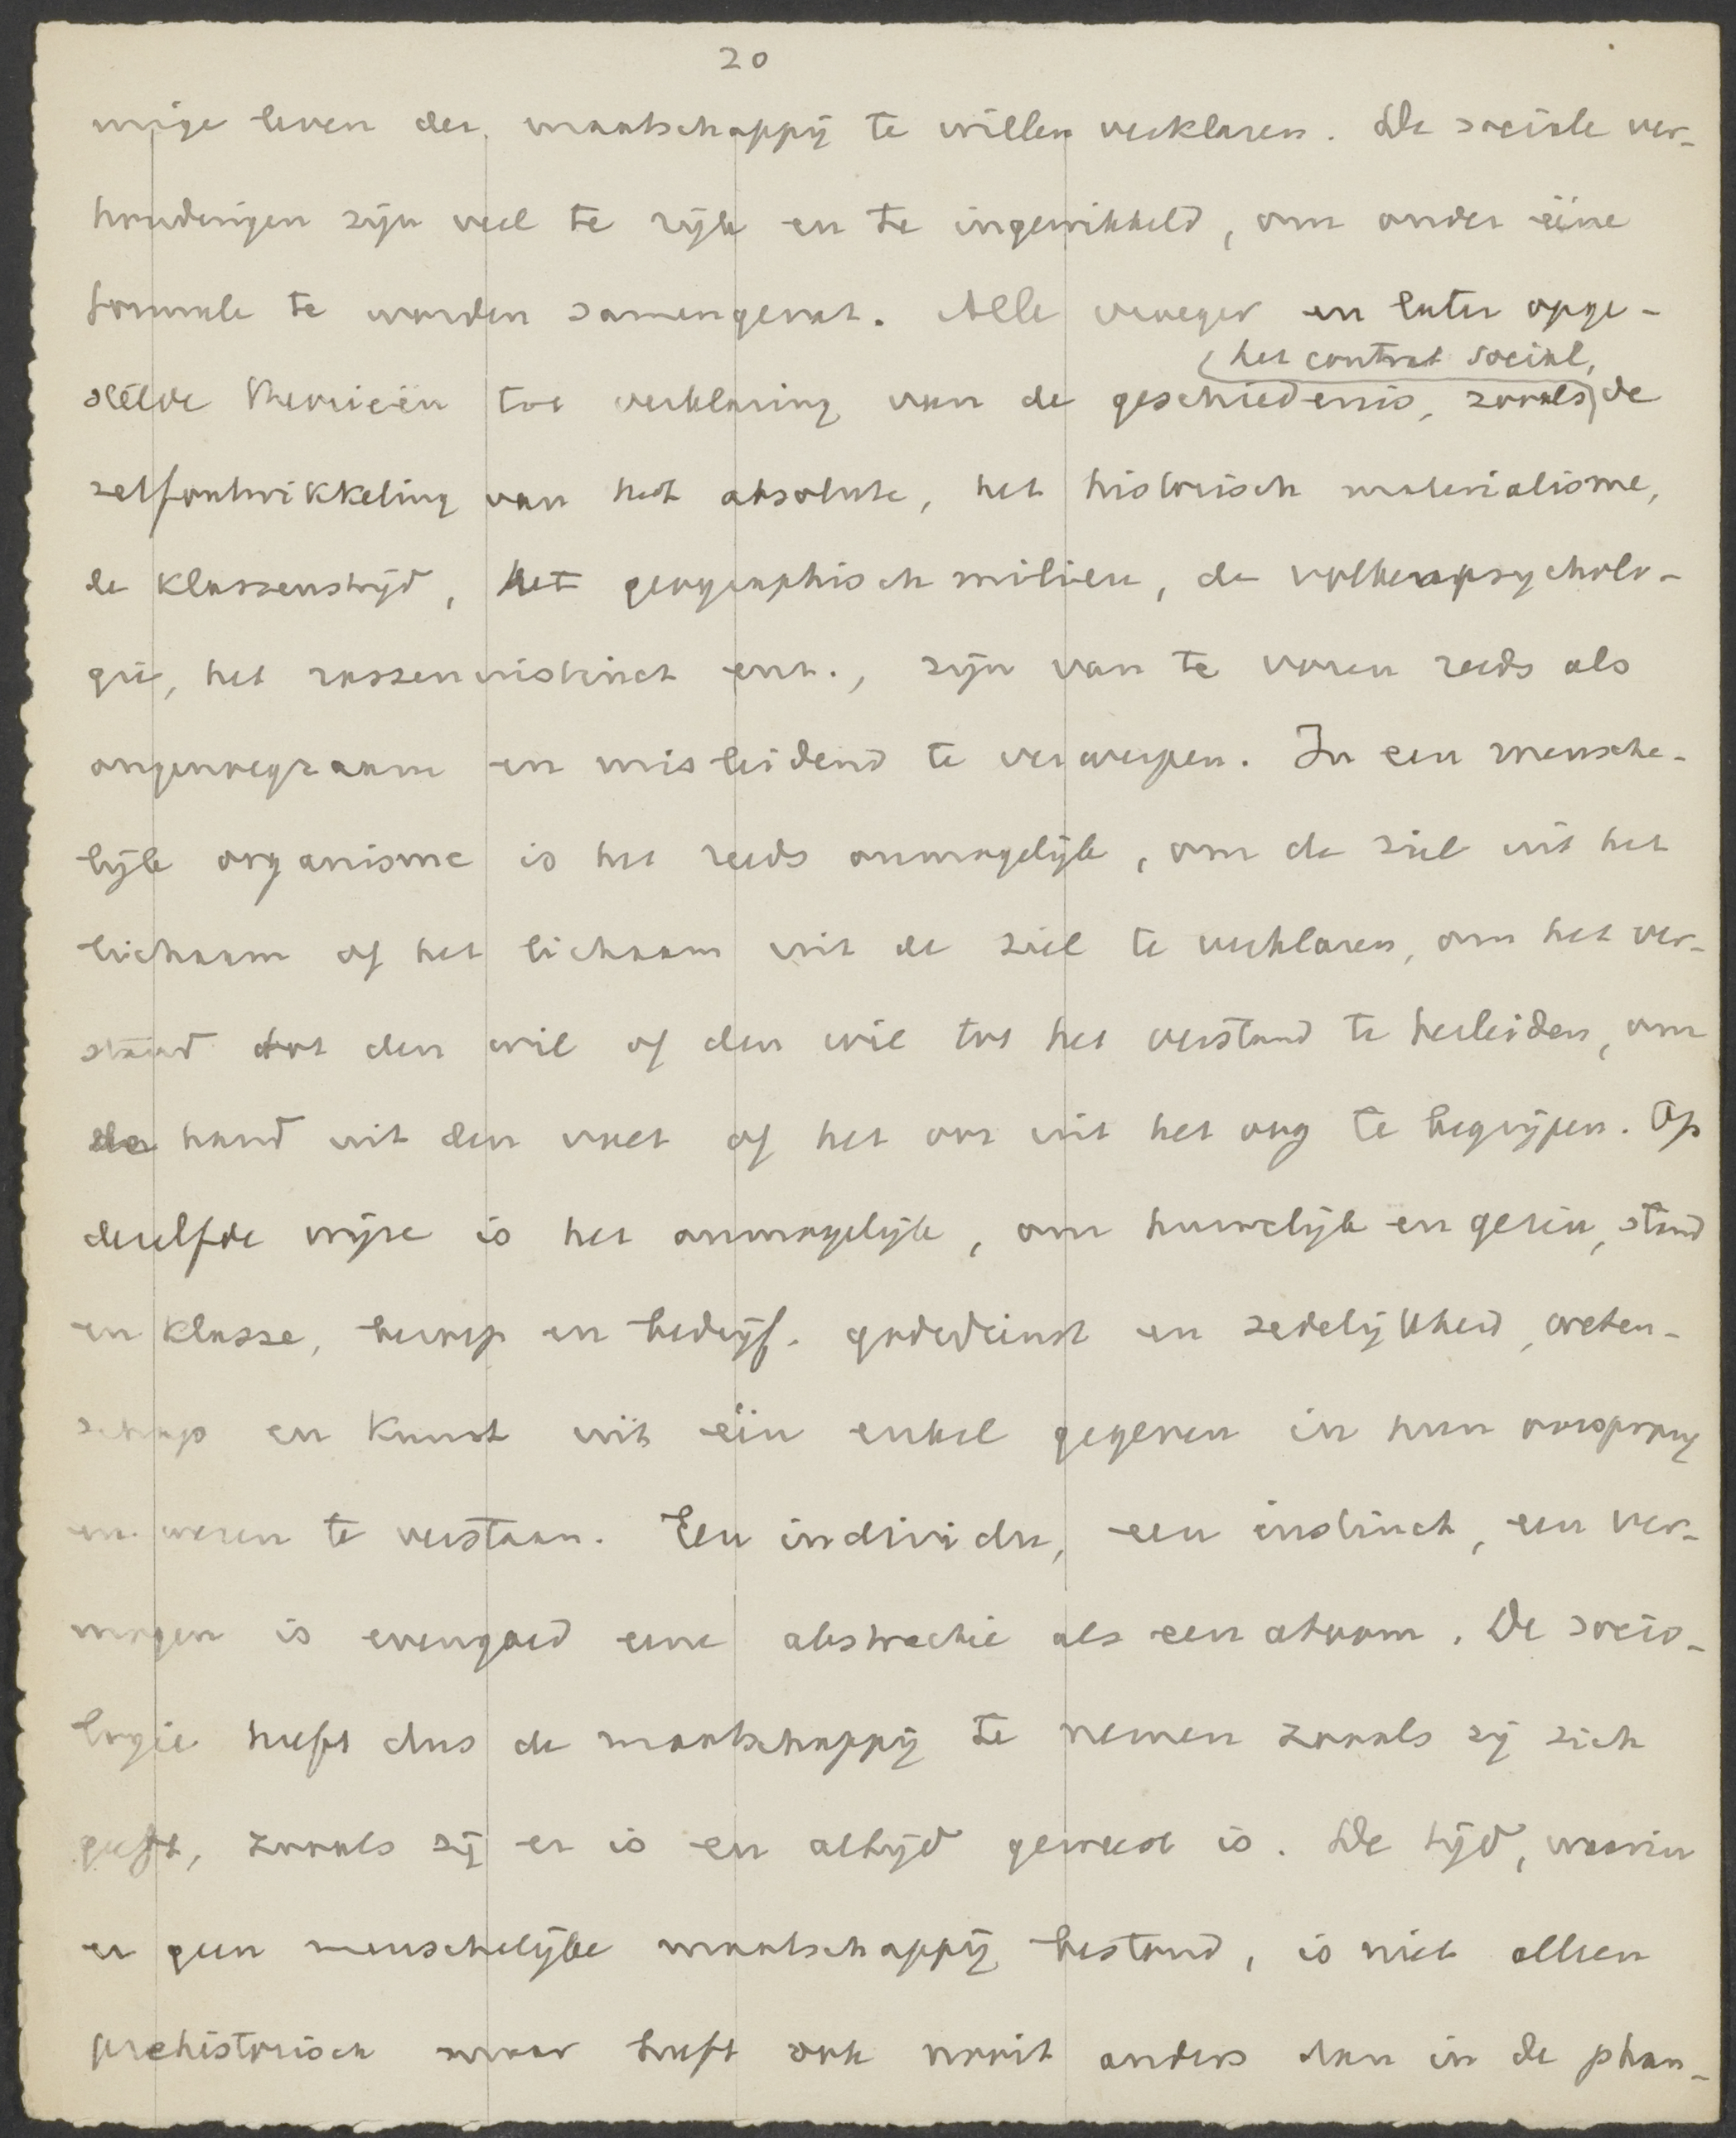 20
nige leven der maatschappij te willen verklaren. De sociale ver-
houdingen zijn veel te rijk en te ingewikkeld, om onder ééne
formule te worden samengevat. Alle vroeger en later opge-
het contrat social,
stelde theorieën tot verklaring van de geschiedenis, zooals de
zelfontwikkeling van het absolute, het historisch materialisme,
de klassenstrijd, het geographisch milieu, de volkenpsycholo-
gie, het rasseninstinct enz., zijn van te voren reeds als
ongenoegzaam en misleidend te verwerpen. In een mensche-
lijk organisme is het reeds onmogelijk, om de ziel uit het
lichaam of het lichaam uit de ziel te verklaren, om het ver-
stand tot den wil of den wil tot het verstand te herleiden, om
de hand uit den voet of het oor uit het oog te begrijpen. Op
dezelfde wijze is het onmogelijk, om huwelijk en gezin, stand
en klasse, beroep en bedrijf, godsdienst en zedelijkheid, weten-
schap en kunst uit één enkel gegeven in hun oorsprong
en wezen te verstaan. Een individu, een instinct, een ver-
mogen is evengoed eene abstractie als een atoom. De socio-
logie heeft dus de maatschappij te nemen zooals zij zich
geeft, zooals zij er is en altijd geweest is. De tijd, waarin
er geen menschelijke maatschappij bestond, is niet alleen
prehistorisch maar heeft ook nooit anders dan in de phan-